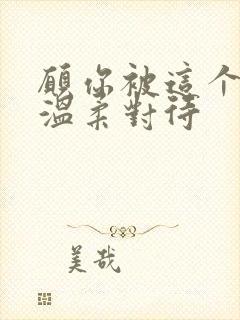 願你被這个
溫柔對待
美哉